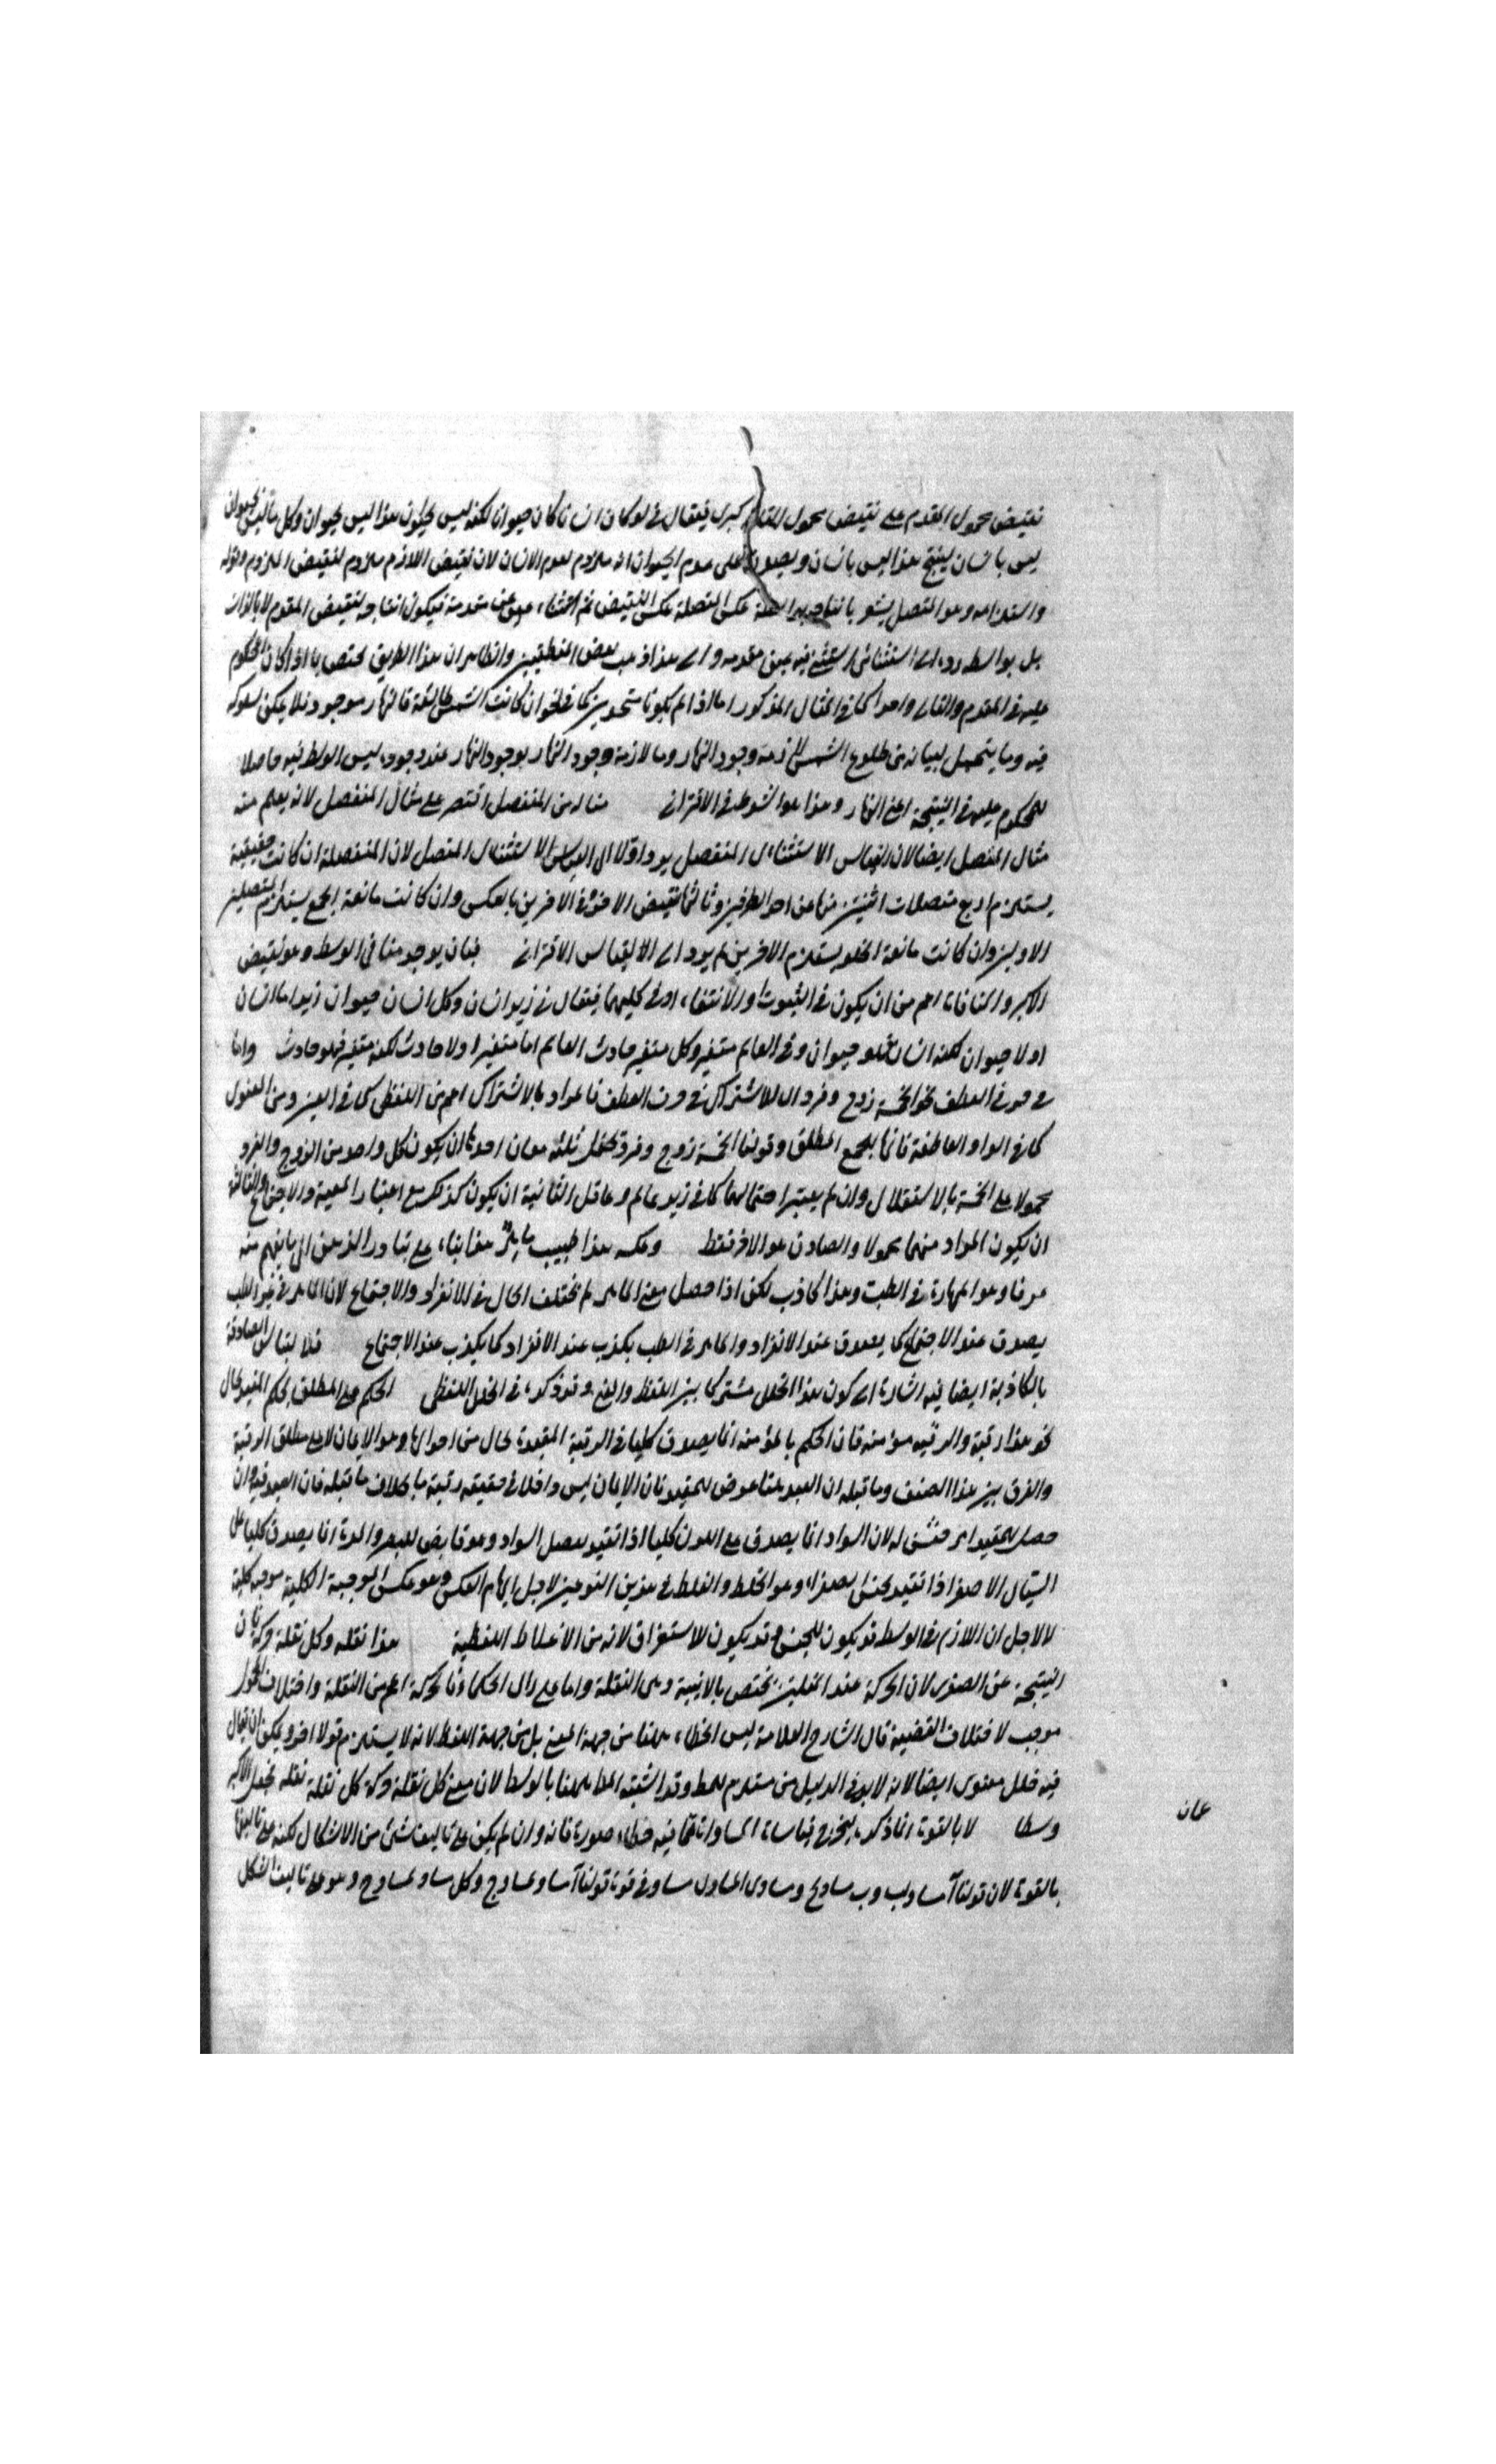 نقيض محمول المقدم على نقيض محمول التالي كبرى فيقال في لو كان انسانا كان حيوانا لكنه ليس بحيوان هذا ليس بحيوان وكل ما ليس بحيوان
ليس بانسان ينتج هذا ليس بانسان ويصدق على عدم الحيوان انه ملزوم لعدم الانسان لان نقيض اللازم ملزوم لنقيض الملزوم وقوله
عكس المتصلة عكس النقيض ثم استثناء عين مقدمه فيكون انتاجه لنقيض المقدم لا بالذات
بل بواسطة رده الى استثنائي استثني فيه عين مقدمه والى هذا ذهب بعض المنطقيين والظاهر ان هذا الطريق مختص بما اذا كان المحكوم
عليه في المقدم والتالي واحدا كما في المثال المذكور اما اذا لم يكونا متحدين كما في نحو ان كانت الشمس طالعة فالنهار موجود فلا يمكن سلوكه
فيه وما يتحمل لبيانه من طلوع الشمس ملازمه وجود النهار وملازمة وجود النهار بوجود النهار عند وجوده ليس الوسط فيه حاصلا
للمحكوم عليه في النتيجة اعني النهار وهذا هو الشرط في الاقتراني مثاله من المنفصل اقتصر على مثال المنفصل لانه يعلم منه
مثال المتصل ايضا لان القياس الاستثنائي المنفصل يرد اولا الى القياس الاستثنائي المتصل لان المنفصلة ان كانت حقيقية
يستلزم اربع متصلات اثنين منها عين احد الطرفين وثانيهما نقيض الاخر وفي الاخرين بالعكس وان كانت مانعة الجمع يستلزم المتصلين
الاولين وان كانت مانعة الخلو يستلزم الاخرين ثم يرد الى القياس الاقتراني فبان يوجد منافي الوسط وهو نقيض
الاكبر والمنافاة اعم من ان يكون في الثبوت او الانتفاء او في كليهما فيقال في زيد انسان وكل انسان حيوان زيد اما انسان
او لا حيوان لكنه انسان فهو حيوان وفي العالم متغير وكل متغير حادث العالم اما متغير او لا حادث لكنه متغير فهو حادث واما
في حرف العطف نحو الخمسة زوج وفرد الى الاشتراك في حرف العطف فالمراد بالاشتراك اعم من اللفظي كما في العين ومن المعنوي
كما في الواو العاطفة فانها للجمع المطلق وقولنا الخمسة زوج وفرد يحتمل ثلثه معان احدها ان يكون كل واحد من الزوج والفرد
محمولا على الخمسة بالاستقلال وان لم يعتبر اجتماعهما كما في زيد عالم وعاقل الثانية ان يكون كذلك مع اعتبار المعية والاجتماع والثالثة
ان يكون المراد منهما محمولا والصادق هو الاخر فقط وعكسه هذا طبيب ماهر هذا بناء على تبادر الذهن الى ما يفهم منه
عرفا وهو المهارة في الطب وهذا كاذب لكن اذا حصل معنى الماهر لم يختلف الحال في الانفراد والاجتماع لان الماهر في غير الطب
يصدق عند الاجتماع كما يصدق عند الانفراد والماهر في الطب يكذب عند الانفراد كما يكذب عند الاجتماع فلالتباس الصادقة
بالكاذبة ايضا فيه اشارة الى كون هذا الخلل مشتركا بين اللفظ والمعنى وقد ذكره في الخلل اللفظي الحكم على المطلق بحكم المقيد بحال
نحو هذا رقبة والرقبه مؤمنه فان الحكم بالمؤمنه انما يصدق كليا في الرقبة المقيدة بحال من احوالها وهو الايمان لا على مطلق الرقبة
والفرق بين هذا الصنف وما قبله ان القيد ههنا عرض للمقيد فان الايمان ليس داخلا في حقيقة رقبة ما بخلاف ما قبله فان القيد فيه وان
حصل للمقيد امر لان السواد انما يصدق على اللون كليا اذا تقيد بفصل السواد وهو قابض للبصر والمرة انما يصدق كليا على
السيال الاصفر اذا تقيد بجنس الصفراء وهو الخلط والغلط في هذين النوعين لاجل ايهام العكس وهو عكس الموجبة الكلية موجبة كلية
لا لاجل ان اللازم في الوسط قد يكون للجنس وقد يكون للاستغراق لانه من الاغلاط اللفظية هذا نقله وكل نقلة حركة فان
النتيجة عين الصغرى لان الحركة عند المتكلمين يختص بالاينية وهي النقلة واما على راى الحكماء فالحركة اعم من النقلة واختلاف المحمول
موجب لاختلاف القضية قال الشارح العلامة ليس الخطاء ههنا من جهة المعنى بل من جهة اللفظ لانه لا يستلزم قولا اخر ويمكن ان يقال
فيه خلل معنوي ايضا لانه لا بد في الدليل من مستلزم للمط وقد اشتبه المط ههنا بالوسط لان معنى كل نقلة حركة كل نقلة نقله فجعل الاكبر
وسطا لا بالقوة انما ذكره ليخرج قياسات المساواة فانه وان لم يكن على تاليف شئ من الاشكال لكنه على تاليفها
بالقوة لان قولنا آ مساو لب وب مساو لج ومساوي المساوي مساو في قوة قولنا آ مساو لمساو ج وكل مساو لمساو ج وهو على تاليف الشكل